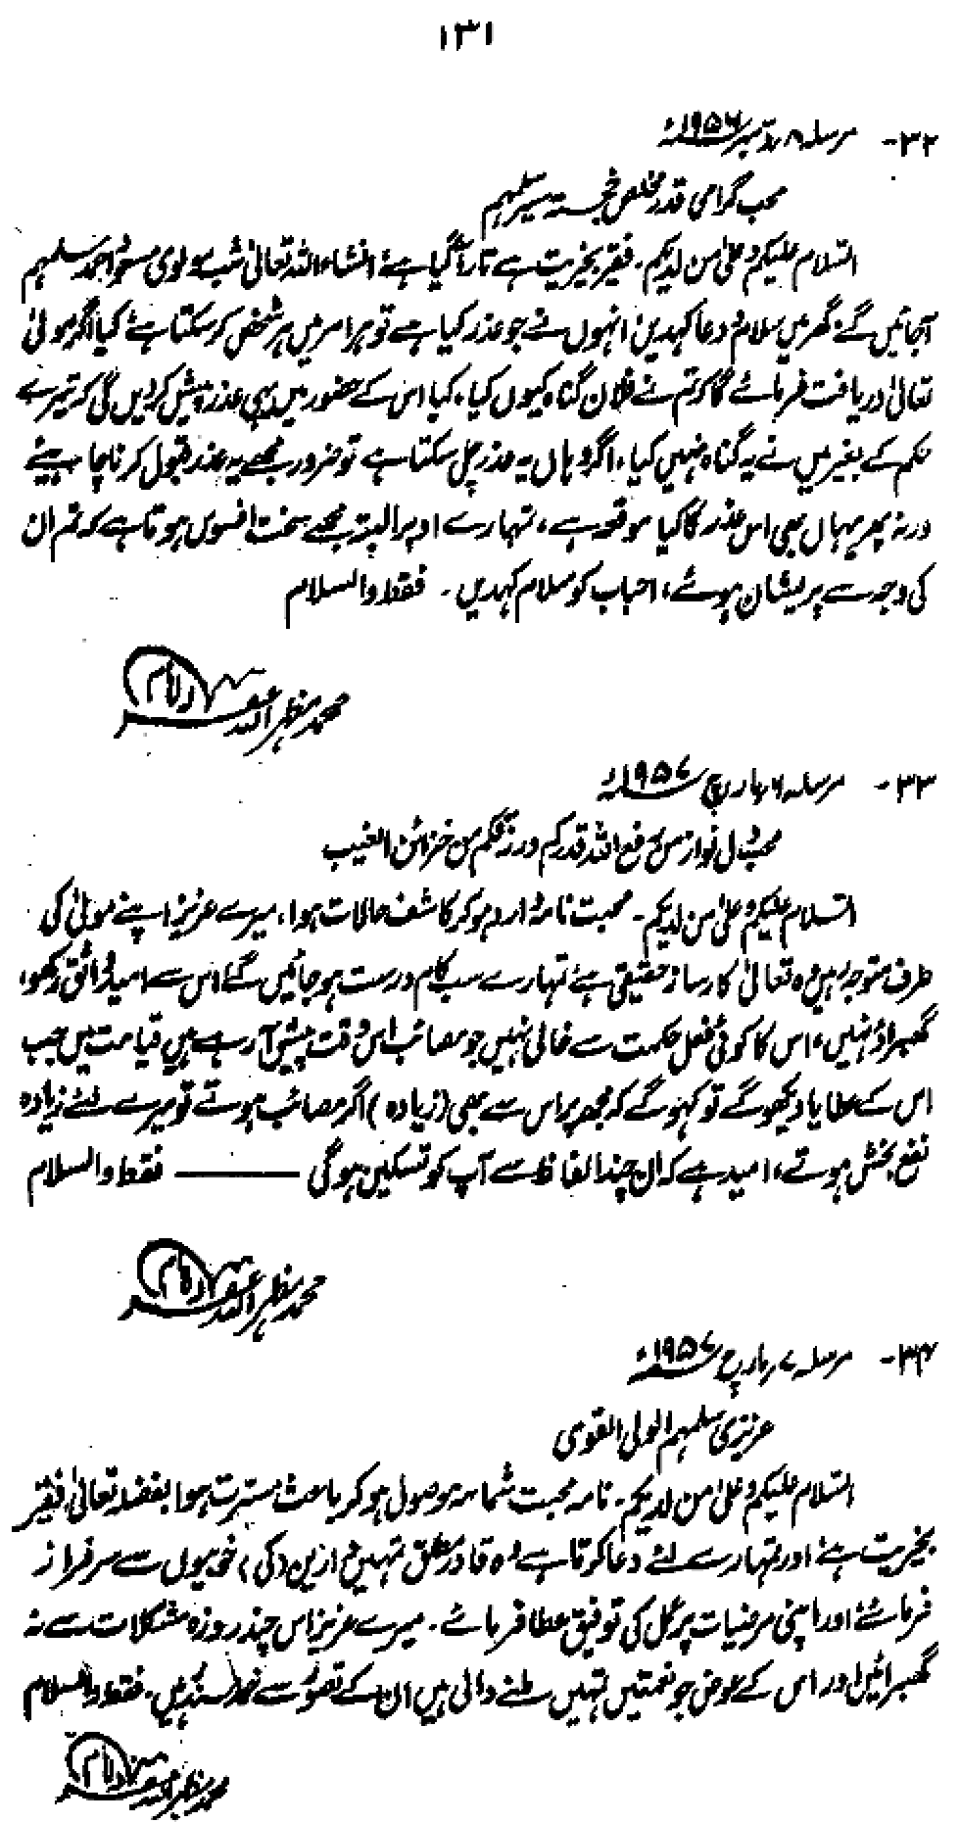 ۱۳۱
۳۲- مرسلہ ۸ ستمبر ۱۹۵۶ء
محب گرامی قدر مخلص خجستہ سیر سلہم
السلام علیکم وعلیٰ من لدیکم۔ فقیر بخیریت ہے تار آگیا ہے انشاءاللہ تعالیٰ شب مولوی مسعود احمد سلہم
آجائیں گے، گھر میں سلام و دعا کہدیں انہوں نے جو عذر کیا ہے تو ہر امر میں ہر شخص کر سکتا ہے کیا اگر مولیٰ
تعالیٰ دریافت فرمائے گا کہ تم نے فلان گناہ کیوں کیا، کیا اس کے حضور میں یہی عذر پیش کر دیں گی کہ تیرے
حکم کے بغیر میں نے یہ گناہ نہیں کیا، اگر وہاں یہ عذر چل سکتا ہے تو ضرور مجھے یہ عذر قبول کرنا چاہیئے
ورنہ پھر یہاں بھی اس عذر کا کیا موقعہ ہے، تمہارے اوپر البتہ مجھے سخت افسوس ہوتا ہے کہ تم ان
کی وجہ سے پریشان ہوئے، احباب کو سلام کہدیں۔ فقط والسلام
محمد مظہر اللہ غفرلہ
۳۳- مرسلہ ۶ مارچ ۱۹۵۷ء
محب دل نواز من رفع اللہ قدرکم ورزقکم من خزائن الغیب
السلام علیکم وعلیٰ من لدیکم۔ محبت نامہ وارد ہوکر کاشف حالات ہوا، میرے عزیز اپنے مولیٰ کی
طرف متوجہ رہیں وہ تعالیٰ کارساز حقیقی ہے تمہارے سب کام درست ہو جائیں گے اس سے امید واثق رکھو،
گھبراؤ نہیں، اس کا کوئی فعل حکمت سے خالی نہیں جو مصائب اس وقت پیش آرہے ہیں قیامت میں جب
اس کے عطایا دیکھو گے تو کہو گے کہ مجھ پر اس سے بھی (زیادہ) اگر مصائب ہوتے تو میرے لئے زیادہ
نفع بخش ہوتے، امید ہے کہ ان چند الفاظ سے آپ کو تسکین ہوگی ——— فقط والسلام
محمد مظہر اللہ غفرلہ
۳۴- مرسلہ ۷ مارچ ۱۹۵۷ء
عزیزی سلہم المولی القوی
السلام علیکم وعلیٰ من لدیکم۔ نامہ محبت شمامہ موصول ہوکر باعث مسرت ہوا بفضلہ تعالیٰ فقیر
بخیریت ہے اور تمہارے لئے دعا کرتا ہے وہ قادر مطلق تمہیں دارین (کی) خوبیوں سے سرفراز
فرمائے اور اپنی مرضیات پر عمل کی توفیق عطا فرمائے۔ میرے عزیز اس چند روزہ مشکلات سے نہ
گھبرائیں اور اس کے عوض جو نعمتیں تمہیں ملنے والی ہیں ان کے تصور سے خورسند رہیں۔ فقط والسلام
محمد مظہر اللہ غفرلہ